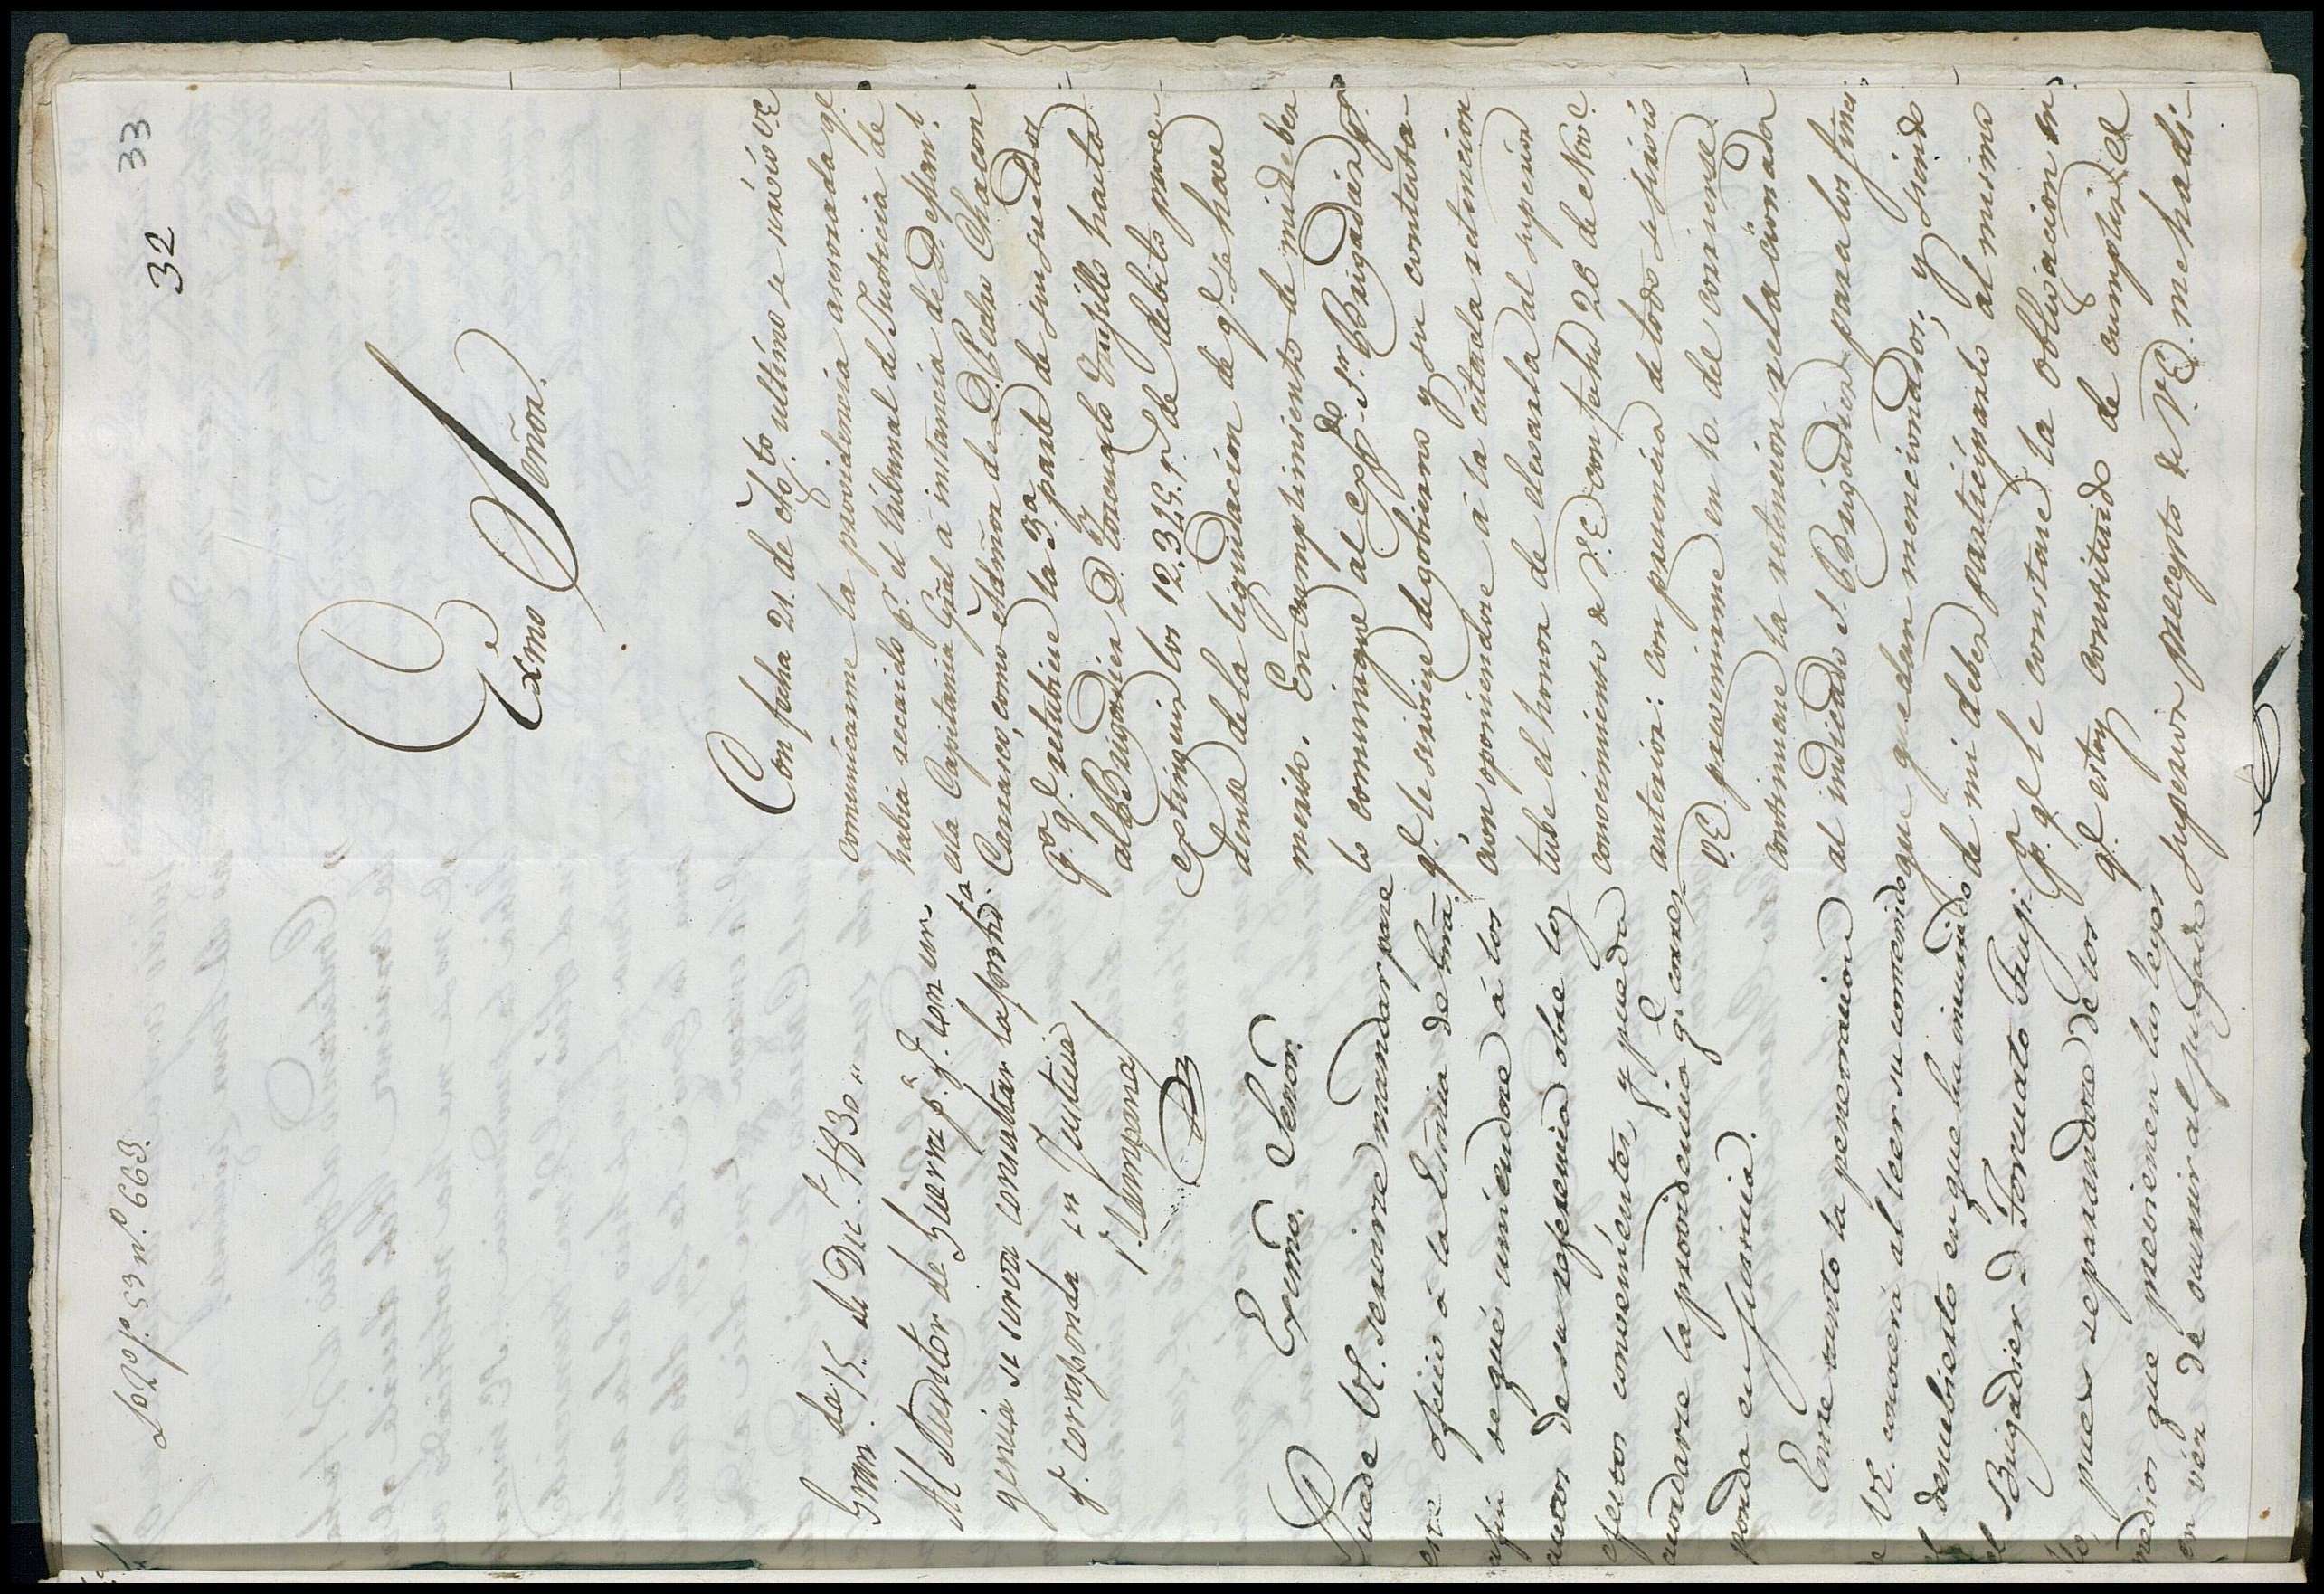 32 33
Lo 29 f. 53 n.º 663.
Exmo Señor.
Con fecha 21. de Ag.to ultimo se sirvió V.E
comunicarme la providencia asesorada q.e
habia recaido p.r el tribunal de Justicia de
esta Capitania Gral á instancia de D. Man.l
Carrasco, como Admor de D. Pedro Chacon
p.a q.e retubiese la 3.a parte de sus sueldos
al Brigadier D. Torcuato Trujillo hasta
extinguir los 12,349. r.s de debito proce-
dente de la liquidacion de q.e se hace
merito. En cumplimiento de mi deber
lo comuniqué al Exp.do S.or Brigadier p.a
q.e le sirviese de gobierno y su contesta-
cion oponiendose á la citada retencion
tube el honor de elevarla al superior
conocimiento de V.E con fecha 28 de Nov.e
anterior: con presencia de todo se sirvió
V.E. prevenirme en 10 del corriente
continuase la retencion relacionada
al indicado S. Brigadier para los fines
que quedan mencionados; y siendo
de mi deber participarlo al mismo
p.a q.e le constase la obligacion en
q.e estoy constituido de cumplir el
superior precepto de V.E. me ha di-
Gran.da 15 de Dic.e 1830
Al Auditor de Guerra p.a q.e con ur-
gencia se sirva consultar la provid.a
q.e corresponda en Justicia
Campana
Exmo. Señor.
Puede V.E. servirse mandar pase
este oficio á la Esnia de Grra.
afin de que uniendose á los
autos de su referencia obre los
efectos convenientes y pueda
acordarse la providencia q.e corres-
ponda en justicia.
Entre tanto la penetracion
de V.E. conocerá al leer su contenido
el descubierto en que ha incurrido
el Brigadier D Torcuato Truji-
llo, pues separandose de los
medios que previenen las leyes
en vez de ocurrir al juzgado